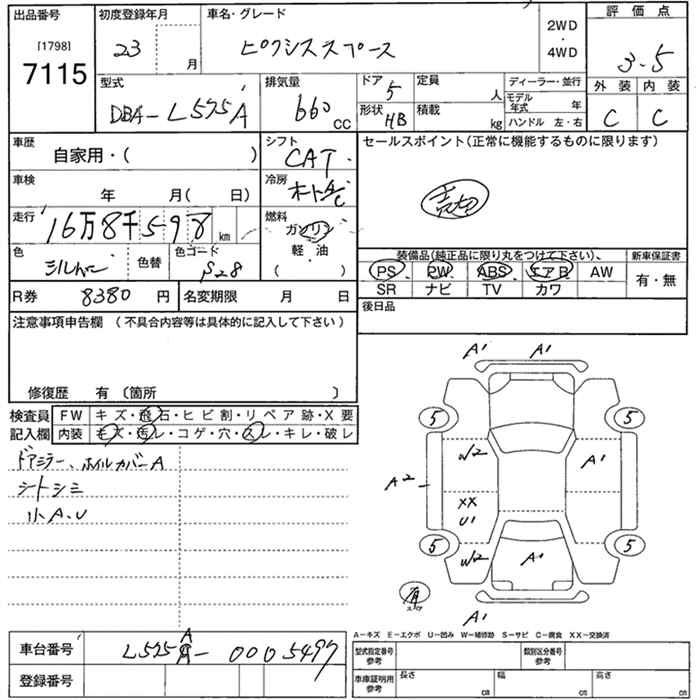 出品番号 [1798] 7115
初度登録年月 23 月
車名・グレード ピクシススペース
2WD ・ 4WD
評価点 3.5
外装 C 内装 C
型式 DBA-L575A
排気量 660 CC
ドア 5 形状 HB
定員 人 積載 kg
ディーラー・並行
モデル年式 年
ハンドル 左・右
車歴 自家用・( )
シフト CAT
セールスポイント(正常に機能するものに限ります)
売切
車検 年 月( 日)
冷房 オートAC
走行 16万8千598 km
燃料 ガソリン 軽・油 ( )
色 シルバー 色替 色コード S28
装備品(純正品に限り丸をつけて下さい)、 新車保証書
PS PW ABS エアB AW 有・無
SR ナビ TV カワ
R券 8380 円 名変期限 月 日
後日品
注意事項申告欄 (不具合内容等は具体的に記入して下さい)
修復歴 有 〔箇所 〕
検査員記入欄
FW キズ・飛石・ヒビ割・リペア跡・X要
内装 キズ・汚レ・コゲ・穴・スレ・キレ・破レ
ドアミラー、ホイルカバーA
シートシミ
小A.U
A1 A1
5 5
W2 A1
A2
XX
U1
5 5
W2 A1
有
A1
A−キズ E−エクボ U−凹み W−補修跡 S−サビ C−腐食 XX−交換済
車台番号 L575A A-0005497
登録番号
型式指定番号 参考 類別区分番号 参考
車庫証明用 参考 長さ cm 幅 cm 高さ cm